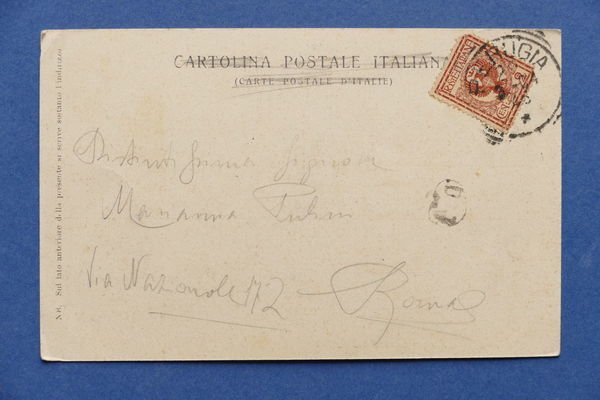 CARTOLINA POSTALE ITALIANA
(CARTE POSTALE D'ITALIE)
POSTE ITALIANE
Distintissima Signora
Marianna
Via Nazionale 172
Roma
N.B. Sul lato anteriore della presente si scrive soltanto l'indirizzo